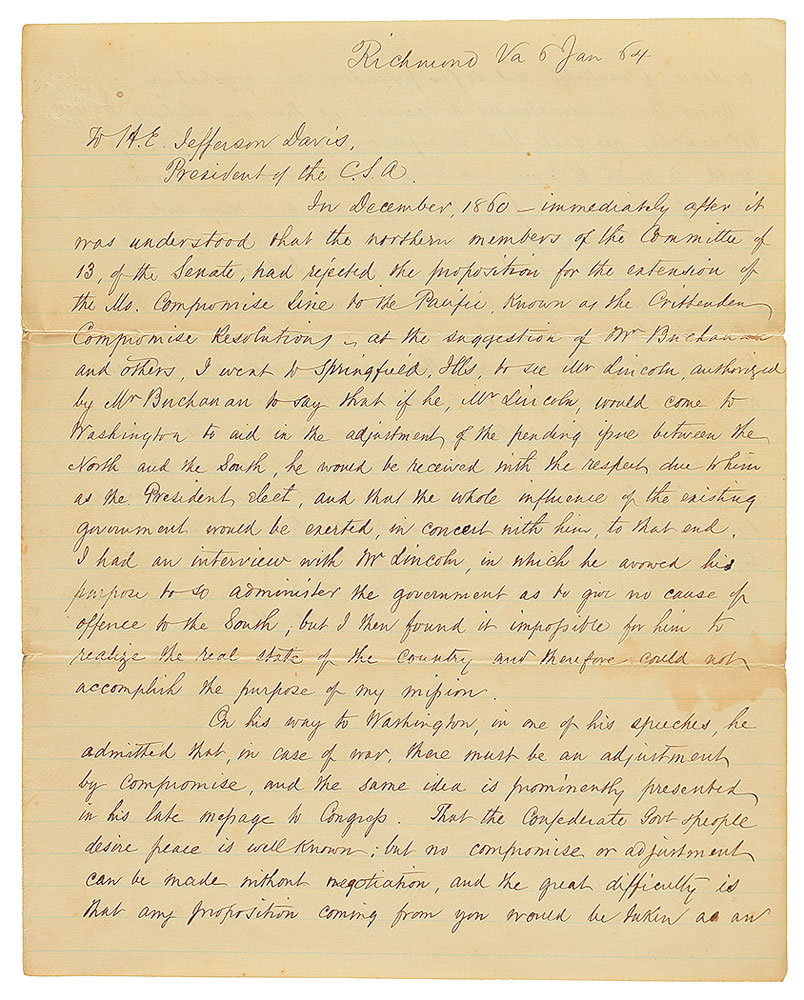 Richmond Va 6 Jan 64
To H.E. Jefferson Davis,
President of the C.S.A.
In December, 1860 – immediately after it
was understood that the northern members of the Committee of
13, of the Senate, had rejected the proposition for the extension of
the Mo. Compromise line to the Pacific, known as the Crittenden
Compromise Resolutions – at the suggestion of Mr Buchanan
and others, I went to Springfield, Ills, to see Mr Lincoln, authorized
by Mr Buchanan to say that if he, Mr Lincoln, would come to
Washington to aid in the adjustment of the pending issue between the
North and the South, he would be received with the respect due to him
as the President elect, and that the whole influence of the existing
government would be exerted, in concert with him, to that end.
I had an interview with Mr Lincoln, in which he avowed his
purpose to so administer the government as to give no cause of
offence to the South; but I then found it impossible for him to
realize the real state of the country and therefore could not
accomplish the purpose of my mission.
On his way to Washington, in one of his speeches, he
admitted that, in case of war, there must be an adjustment
by compromise, and the same idea is prominently presented
in his late message to Congress. That the Confederate Govt & people
desire peace is well known; but no compromise or adjustment
can be made without negotiation, and the great difficulty is
that any proposition coming from you would be taken as an